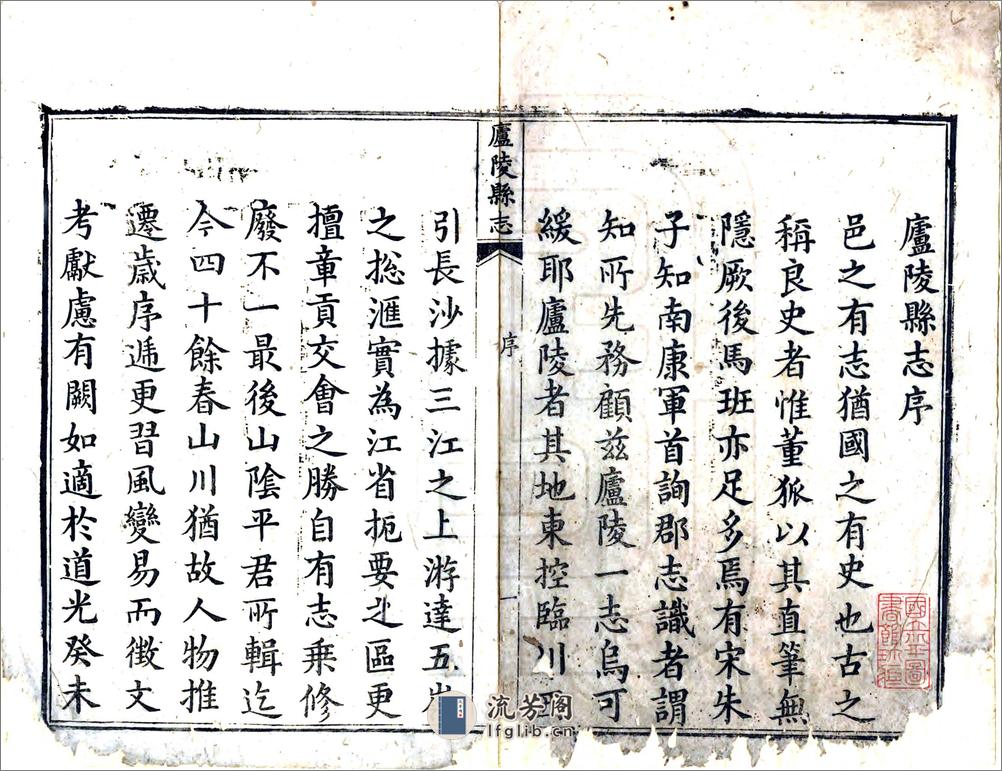 廬陵縣志序
邑之有志猶國之有史也古之
稱良史者惟董狐以其直筆無
隱厥後馬班亦足多焉有宋朱
子知南康軍首詢郡志識者謂
知所先務顧兹廬陵一志烏可
緩耶廬陵者其地東控臨川
廬陵縣志
序
一
引長沙據三江之上游達五
之揔滙實為江省扼要之區更
擅章貢交會之勝自有志乗修
廢不一最後山陰平君所輯迄
今四十餘春山川猶故人物推
遷歲序遞更習風變易而徵文
考獻慮有闕如適於道光癸未
流芳阁
lfglib.cn